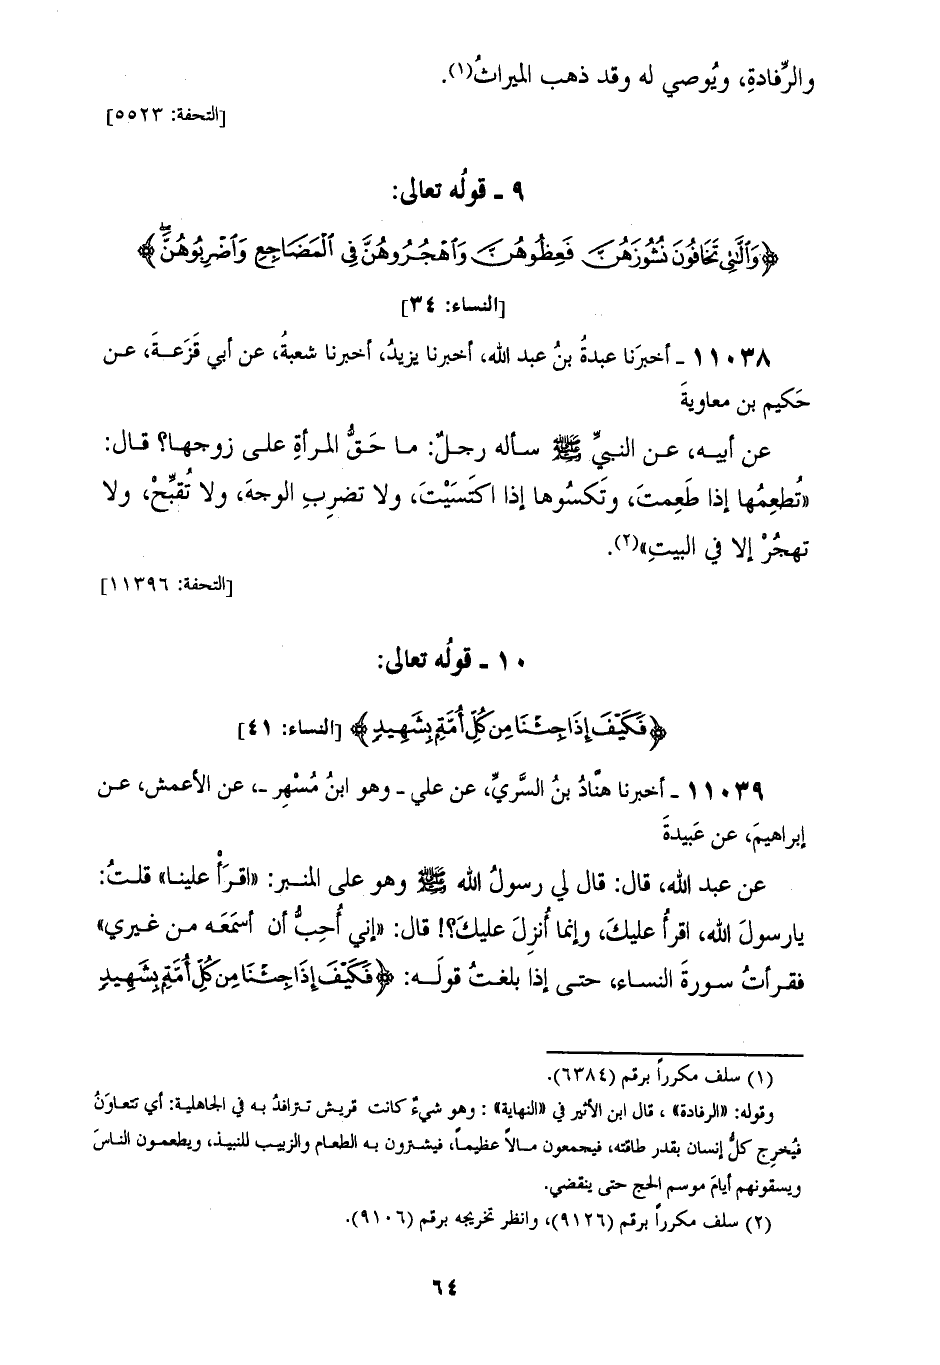 والرِّفادةِ، ويُوصي له وقد ذهب الميراثُ(١).
[التحفة: ٥٥٢٣]
٩ ـ قولُه تعالى:
﴿وَٱلَّٰتِي تَخَافُونَ نُشُوزَهُنَّ فَعِظُوهُنَّ وَٱهْجُرُوهُنَّ فِي ٱلْمَضَاجِعِ وَٱضْرِبُوهُنَّۖ﴾
[النساء: ٣٤]
١١٠٣٨ ـ أخبرَنا عبدةُ بنُ عبد الله، أخبرنا يزيدُ، أخبرنا شعبةُ، عن أبي قَزَعـةَ، عـن
حَكيم بن معاويةَ
عن أبيـه، عـن النبيِّ ﷺ سـأله رجـلٌ: مـا حَـقُّ المـرأةِ علـى زوجهـا؟ قـال:
«تُطعِمُها إذا طَعِمتَ، وتَكسُوها إذا اكتَسَيْتَ، ولا تضرِبِ الوجهَ، ولا تُقبِّحْ، ولا
تهجُرْ إلا في البيتِ»(٢).
[التحفة: ١١٣٩٦]
١٠ ـ قولُه تعالى:
﴿فَكَيْفَ إِذَا جِئْنَا مِن كُلِّ أُمَّةِۭ بِشَهِيدٍ﴾ [النساء: ٤١]
١١٠٣٩ ـ أخبرنا هنَّادُ بنُ السَّريِّ، عن علي ـ وهو ابنُ مُسْهِر ـ، عن الأعمش، عـن
إبراهيمَ، عن عَبيدةَ
عن عبد الله، قال: قال لي رسولُ الله ﷺ وهو على المنـبر: «اقـرَأْ علينـا» قلـتُ:
يارسولَ الله، اقرأُ عليكَ، وإنما أُنزِلَ عليكَ؟! قال: «إني أُحِبُّ أن أسمَعَه مـن غيري»
فقـرأتُ سـورةَ النسـاء، حتـى إذا بلغـتُ قولَـه: ﴿فَكَيْفَ إِذَا جِئْنَا مِن كُلِّ أُمَّةِۭ بِشَهِيدٍ
(١) سلف مكرراً برقم (٦٣٨٤).
وقوله: «الرفادة» ، قال ابن الأثير في «النهاية» : وهو شيءٌ كانت قريش تـترافدُ بـه في الجاهلية: أي تتعاونُ
فيُخرِج كلُّ إنسان بقدر طاقته، فيجمعون مـالاً عظيمـاً، فيشـترون بـه الطعـام والزبيب للنبيـذ، ويطعمـون النـاسَ
ويسقونهم أيامَ موسم الحج حتى ينقضي.
(٢) سلف مكرراً برقم (٩١٢٦)، وانظر تخريجه برقم (٩١٠٦).
٦٤